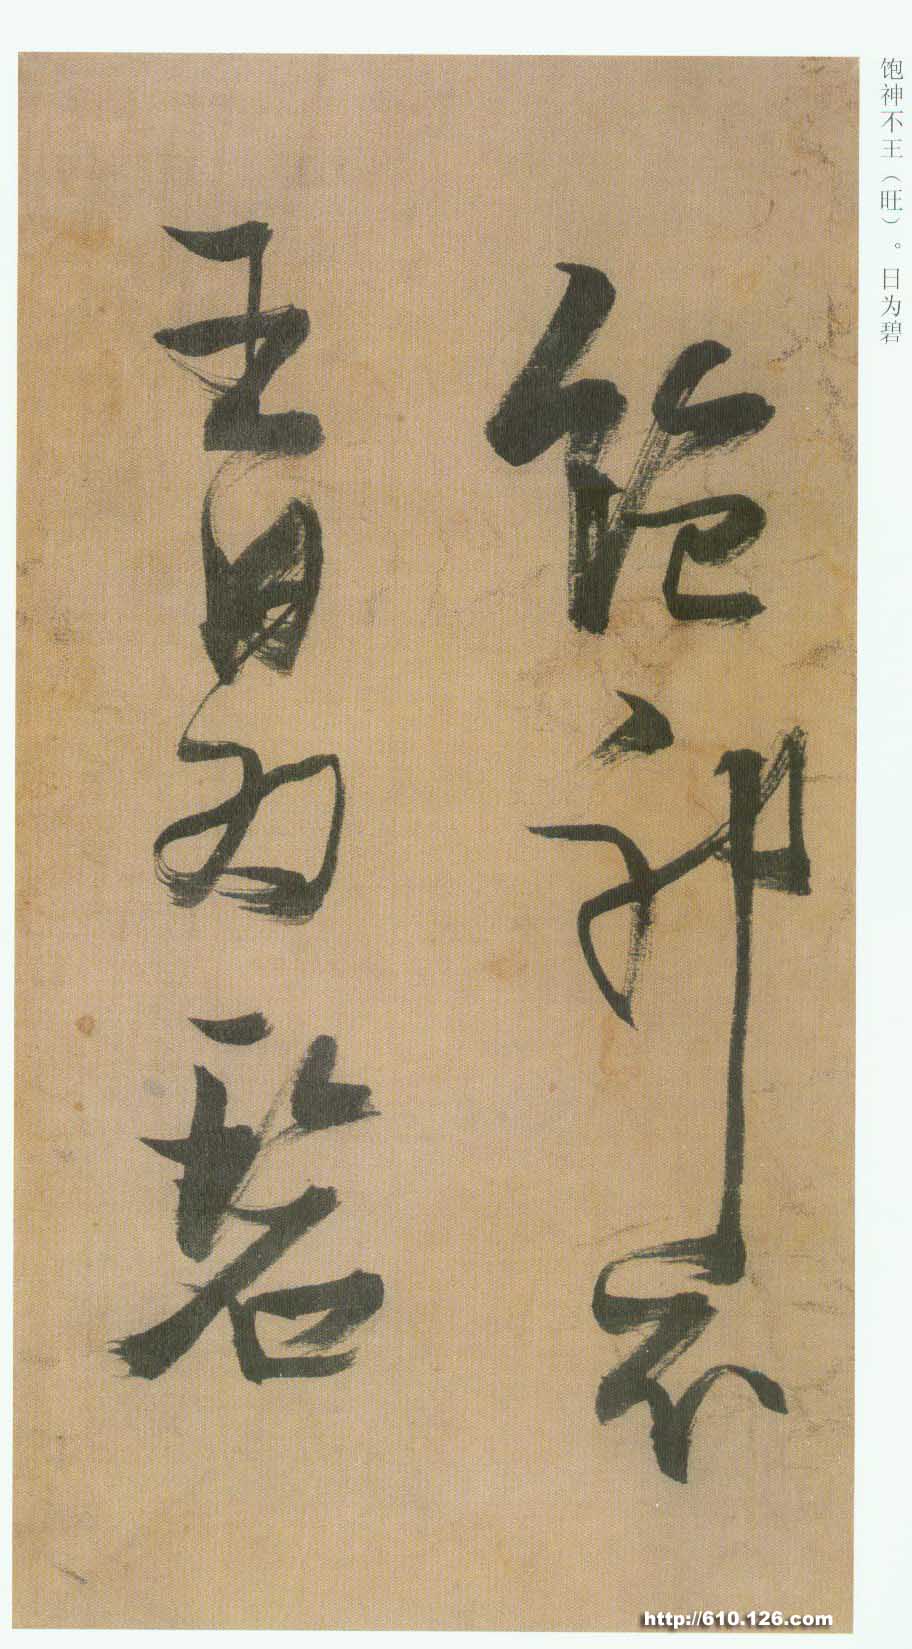 饱神不王（旺）。日为碧
飽神不
王日为碧
http://610.126.com